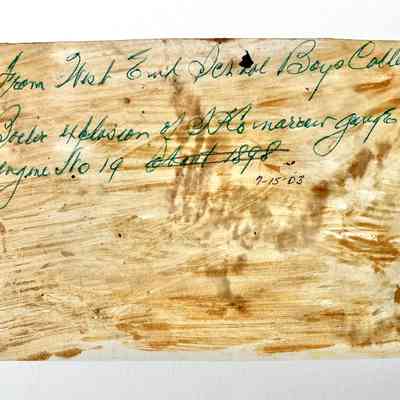 From West End School Boys Colle
Boiler explosion of S.R's narrow gauge
engine No 19 about 1898
7-15-03